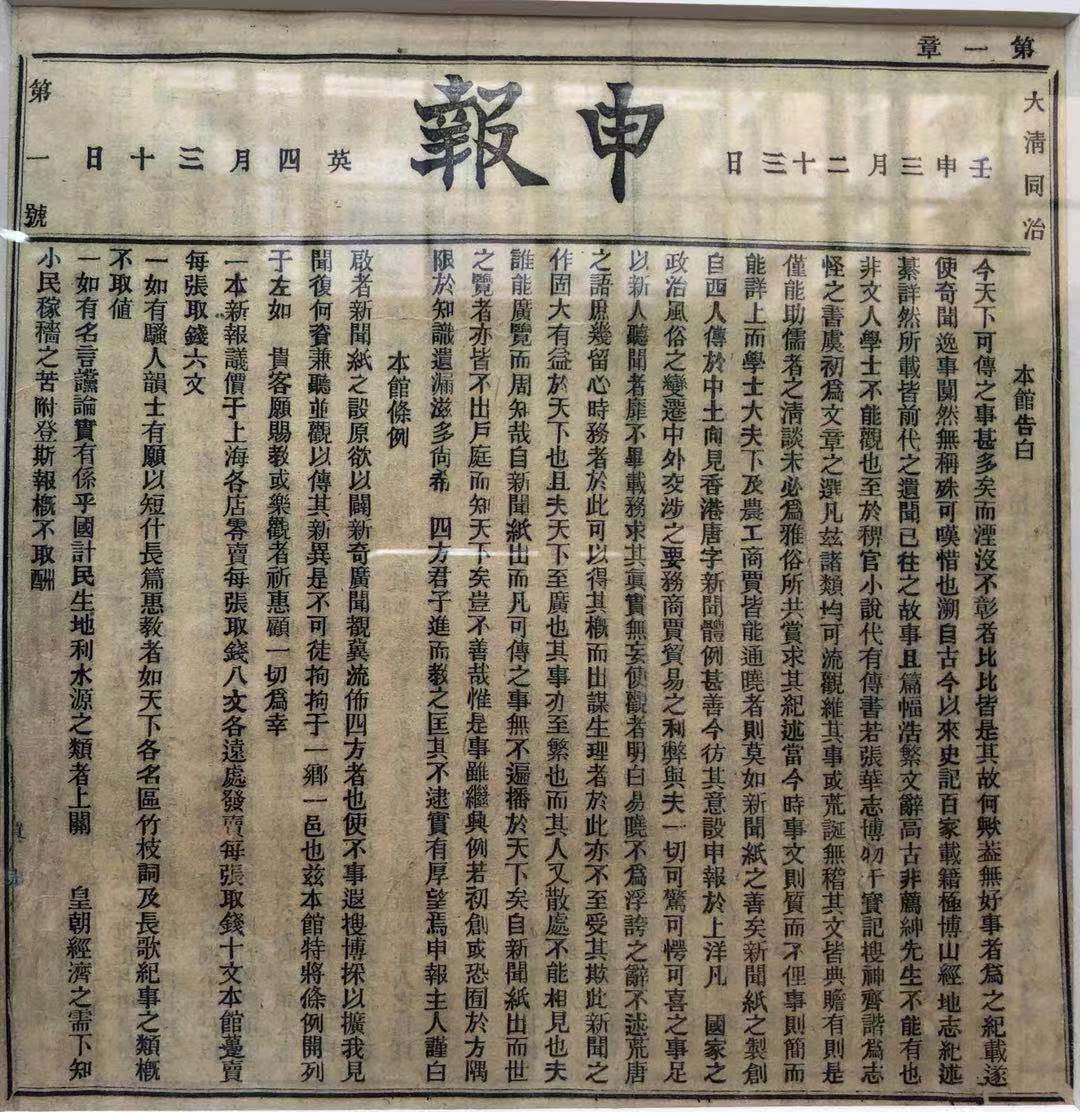 第一章
大清同治
壬申三月二十三日
申報
英四月三十日
第一號
本館告白
今天下可傳之事甚多矣而湮沒不彰者比比皆是其故何歟蓋無好事者爲之紀載遂
使奇聞逸事闃然無稱殊可嘆惜也溯自古今以來史記百家載籍極博山經地志紀述
綦詳然所載皆前代之遺聞已往之故事且篇幅浩繁文辭高古非薦紳先生不能有也
非文人學士不能觀也至於稗官小說代有傳書若張華志博物干寶記搜神齊諧爲志
怪之書虞初爲文章之選凡茲諸類均可流觀維其事或荒誕無稽其文皆典贍有則是
僅能助儒者之清談未必爲雅俗所共賞求其紀述當今時事文則質而不俚事則簡而
能詳上而學士大夫下及農工商賈皆能通曉者則莫如新聞紙之善矣新聞紙之製創
自西人傳於中土向見香港唐字新聞體例甚善今彷其意設申報於上洋凡　國家之
政治風俗之變遷中外交涉之要務商賈貿易之利弊與夫一切可驚可愕可喜之事足
以新人聽聞者靡不畢載務求其眞實無妄使觀者明白易曉不爲浮誇之辭不述荒唐
之語庶幾留心時務者於此可以得其概而出謀生理者於此亦不至受其欺此新聞之
作固大有益於天下也且夫天下至廣也其事亦至繁也而其人又散處不能相見也夫
誰能廣覽而周知哉自新聞紙出而凡可傳之事無不遍播於天下矣自新聞紙出而世
之覽者亦皆不出戶庭而知天下矣豈不善哉惟是事雖繼興例若初創或恐囿於方隅
限於知識遺漏滋多尚希　四方君子進而教之匡其不逮實有厚望焉申報主人謹白
本館條例
啟者新聞紙之設原欲以闢新奇廣聞覩冀流佈四方者也使不事遐搜博採以擴我見
聞復何資兼聽並觀以傳其新異是不可徒拘拘于一鄉一邑也茲本館特將條例開列
于左如　貴客願賜教或樂觀者祈惠顧一切爲幸
一本新報議價于上海各店零賣每張取錢八文各遠處發賣每張取錢十文本館躉賣
每張取錢六文
一如有騷人韻士有願以短什長篇惠教者如天下各名區竹枝詞及長歌紀事之類概
不取值
一如有名言讜論實有係乎國計民生地利水源之類者上關　皇朝經濟之需下知
小民稼穡之苦附登斯報概不取酬